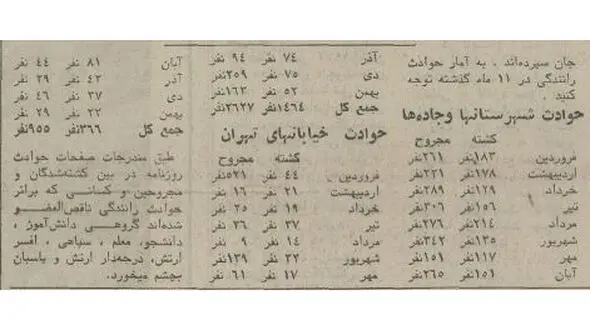 جان سپرده‌اند . به آمار حوادث
رانندگی در ۱۱ ماه گذشته توجه
کنید .
حوادث شهرستانها وجاده‌ها
کشته مجروح
فروردین ۱۸۳نفر ۲۶۱نفر
اردیبهشت ۱۷۸نفر ۲۳۱نفر
خرداد ۱۲۹نفر ۲۸۹نفر
تیر ۱۵۶نفر ۳۰۶نفر
مرداد ۲۱۴نفر ۲۷۶نفر
شهریور ۱۳۵نفر ۳۴۲نفر
مهر ۱۱۷نفر ۱۵۱نفر
آبان ۱۵۱نفر ۲۶۵نفر
آذر ۷۴ نفر ۹۴ نفر
دی ۷۵ نفر ۲۵۹نفر
بهمن ۵۲ نفر ۱۶۳نفر
جمع کل ۱۴۶۴نفر ۲۶۳۷نفر
حوادث خیابانهای تهران
کشته مجروح
فروردین ۴۴ نفر ۵۲۱نفر
اردیبهشت ۲۱ نفر ۱۶ نفر
خرداد ۱۹ نفر ۲۵ نفر
تیر ۳۷ نفر ۳۶ نفر
مرداد ۱۴ نفر ۹ نفر
شهریور ۳۲ نفر ۱۳۹نفر
مهر ۱۷ نفر ۶۱ نفر
آبان ۸۱ نفر ۴۴ نفر
آذر ۴۲ نفر ۲۹ نفر
دی ۳۷ نفر ۴۶ نفر
بهمن ۲۲ نفر ۲۹ نفر
جمع کل ۳۶۶نفر ۹۵۵نفر
طبق مندرجات صفحات حوادث
روزنامه در بین کشته‌شدگان و
مجروحین و کسانی که براثر
حوادث رانندگی ناقص‌العضو
شده‌اند گروهی دانش‌آموز ،
دانشجو، معلم ، سپاهی ، افسر
ارتش، درجه‌دار ارتش و پاسبان
بچشم میخورد.